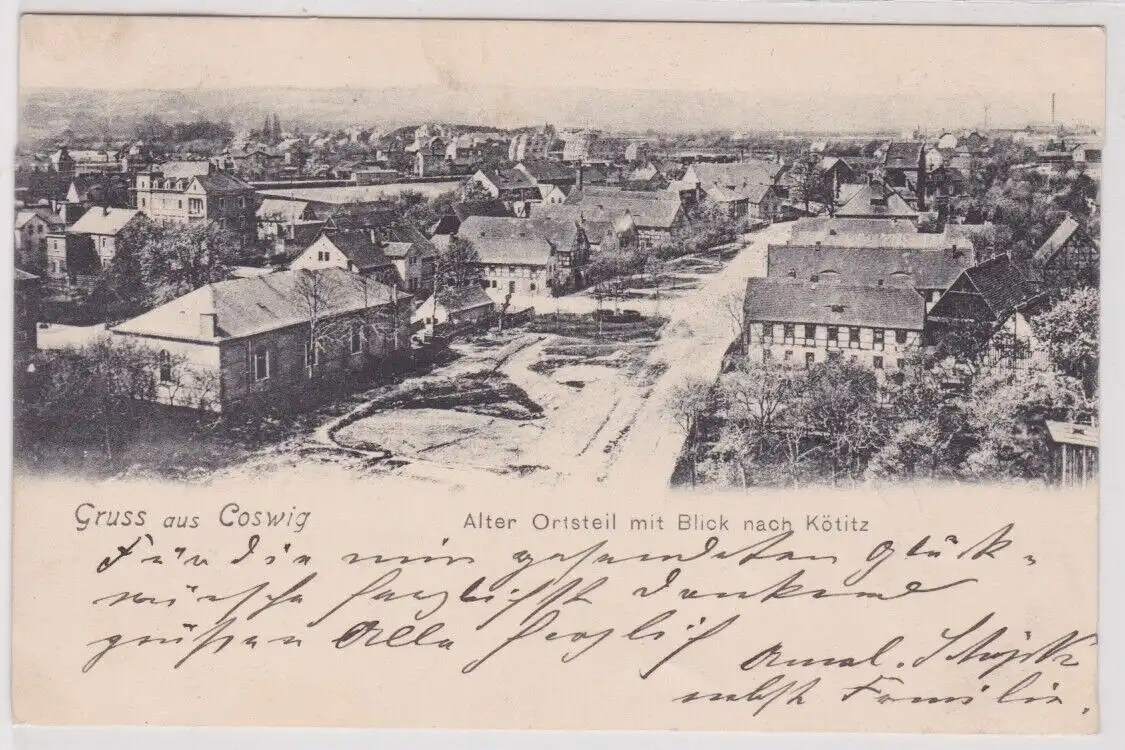 Gruss aus Coswig
Alter Ortsteil mit Blick nach Kötitz
Für die mir gesendeten Glück-
wünsche herzlichst dankend
grüßen Alle herzlich
nebst Familie.